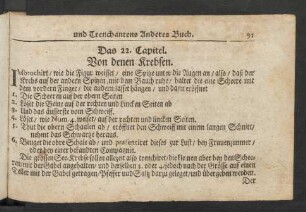 und Trenchantens Anderes Buch. 91
Das 22. Capitel.
Von denen Krebsen.
Imbrochirt / wie die Figur weiset / eine Spitze unter die Augen an / also / daß der
Krebs auf der andern Spitze mit dem Bauch ruhe / haltet die eine Scheere mit
dem vordern Finger / die andern lasset hängen / und dann eröffnet
1. Die Scheeren auf der obern Seiten
2. Löset die Beine auf der rechten und lincken Seiten ab
3. Und das äusserste vom Schweiff.
4. Löset / wie Num. 4. weiset / auf der rechten und lincken Seiten.
5. Thut die obern Schaalen ab / eröffnet den Schweiff mit einem langen Schnitt /
nehmt das Schwartze heraus.
6. Beuget die obre Schale ab / und præsentiret dieses zur Lust / bey Frauenzimmer /
oder bey einer bekandten Compagnie.
Die grössern See-Krebse sollen allezeit also tranchiret; die kan man aber bey den Schee-
ren mit der Gabel angehalten / und derselben 3. oder 4. jedoch nach der Grösse auf einen
Teller mit der Gabel getragen / Pfeffer und Saltz darzu geleget / und übergeben werden.
Der